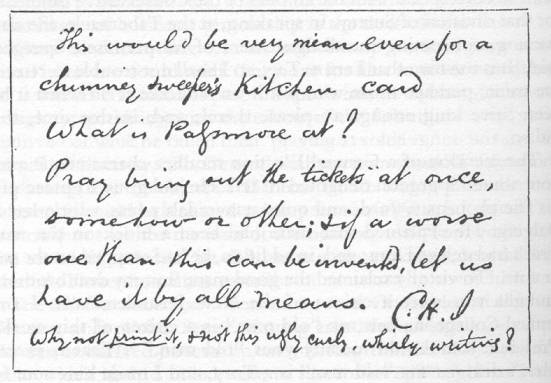 This would be very mean even for a
chimney sweeper's Kitchen card
What is Passmore at?
Pray bring out the tickets at once,
somehow or other, & if a worse
one than this can be invented, let us
have it by all means. C. H. S
Why not print it, & not this ugly curly, whirly writing?